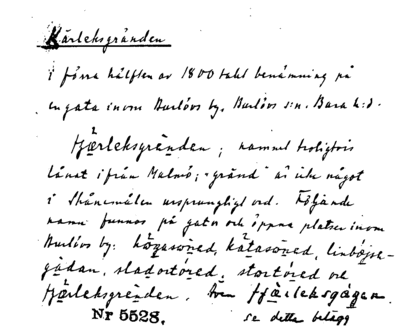 Kärleksgränden
i förra hälften av 1800 talet benämning på
en gata inom Burlövs by, Burlövs s:n. Bara h:d.
fjärleksgränden; namnet troligtvis
lånat ifrån Malmö; "gränd" är icke något
i Skånemålen ursprungligt ord. Följande
namn funnos på gator och öppna platser inom
Burlövs by: kätasored, linbajse-
gådan, stortored och
fjärleksgränden. Även fjärleksgågen
Nr 5528. se detta belägg